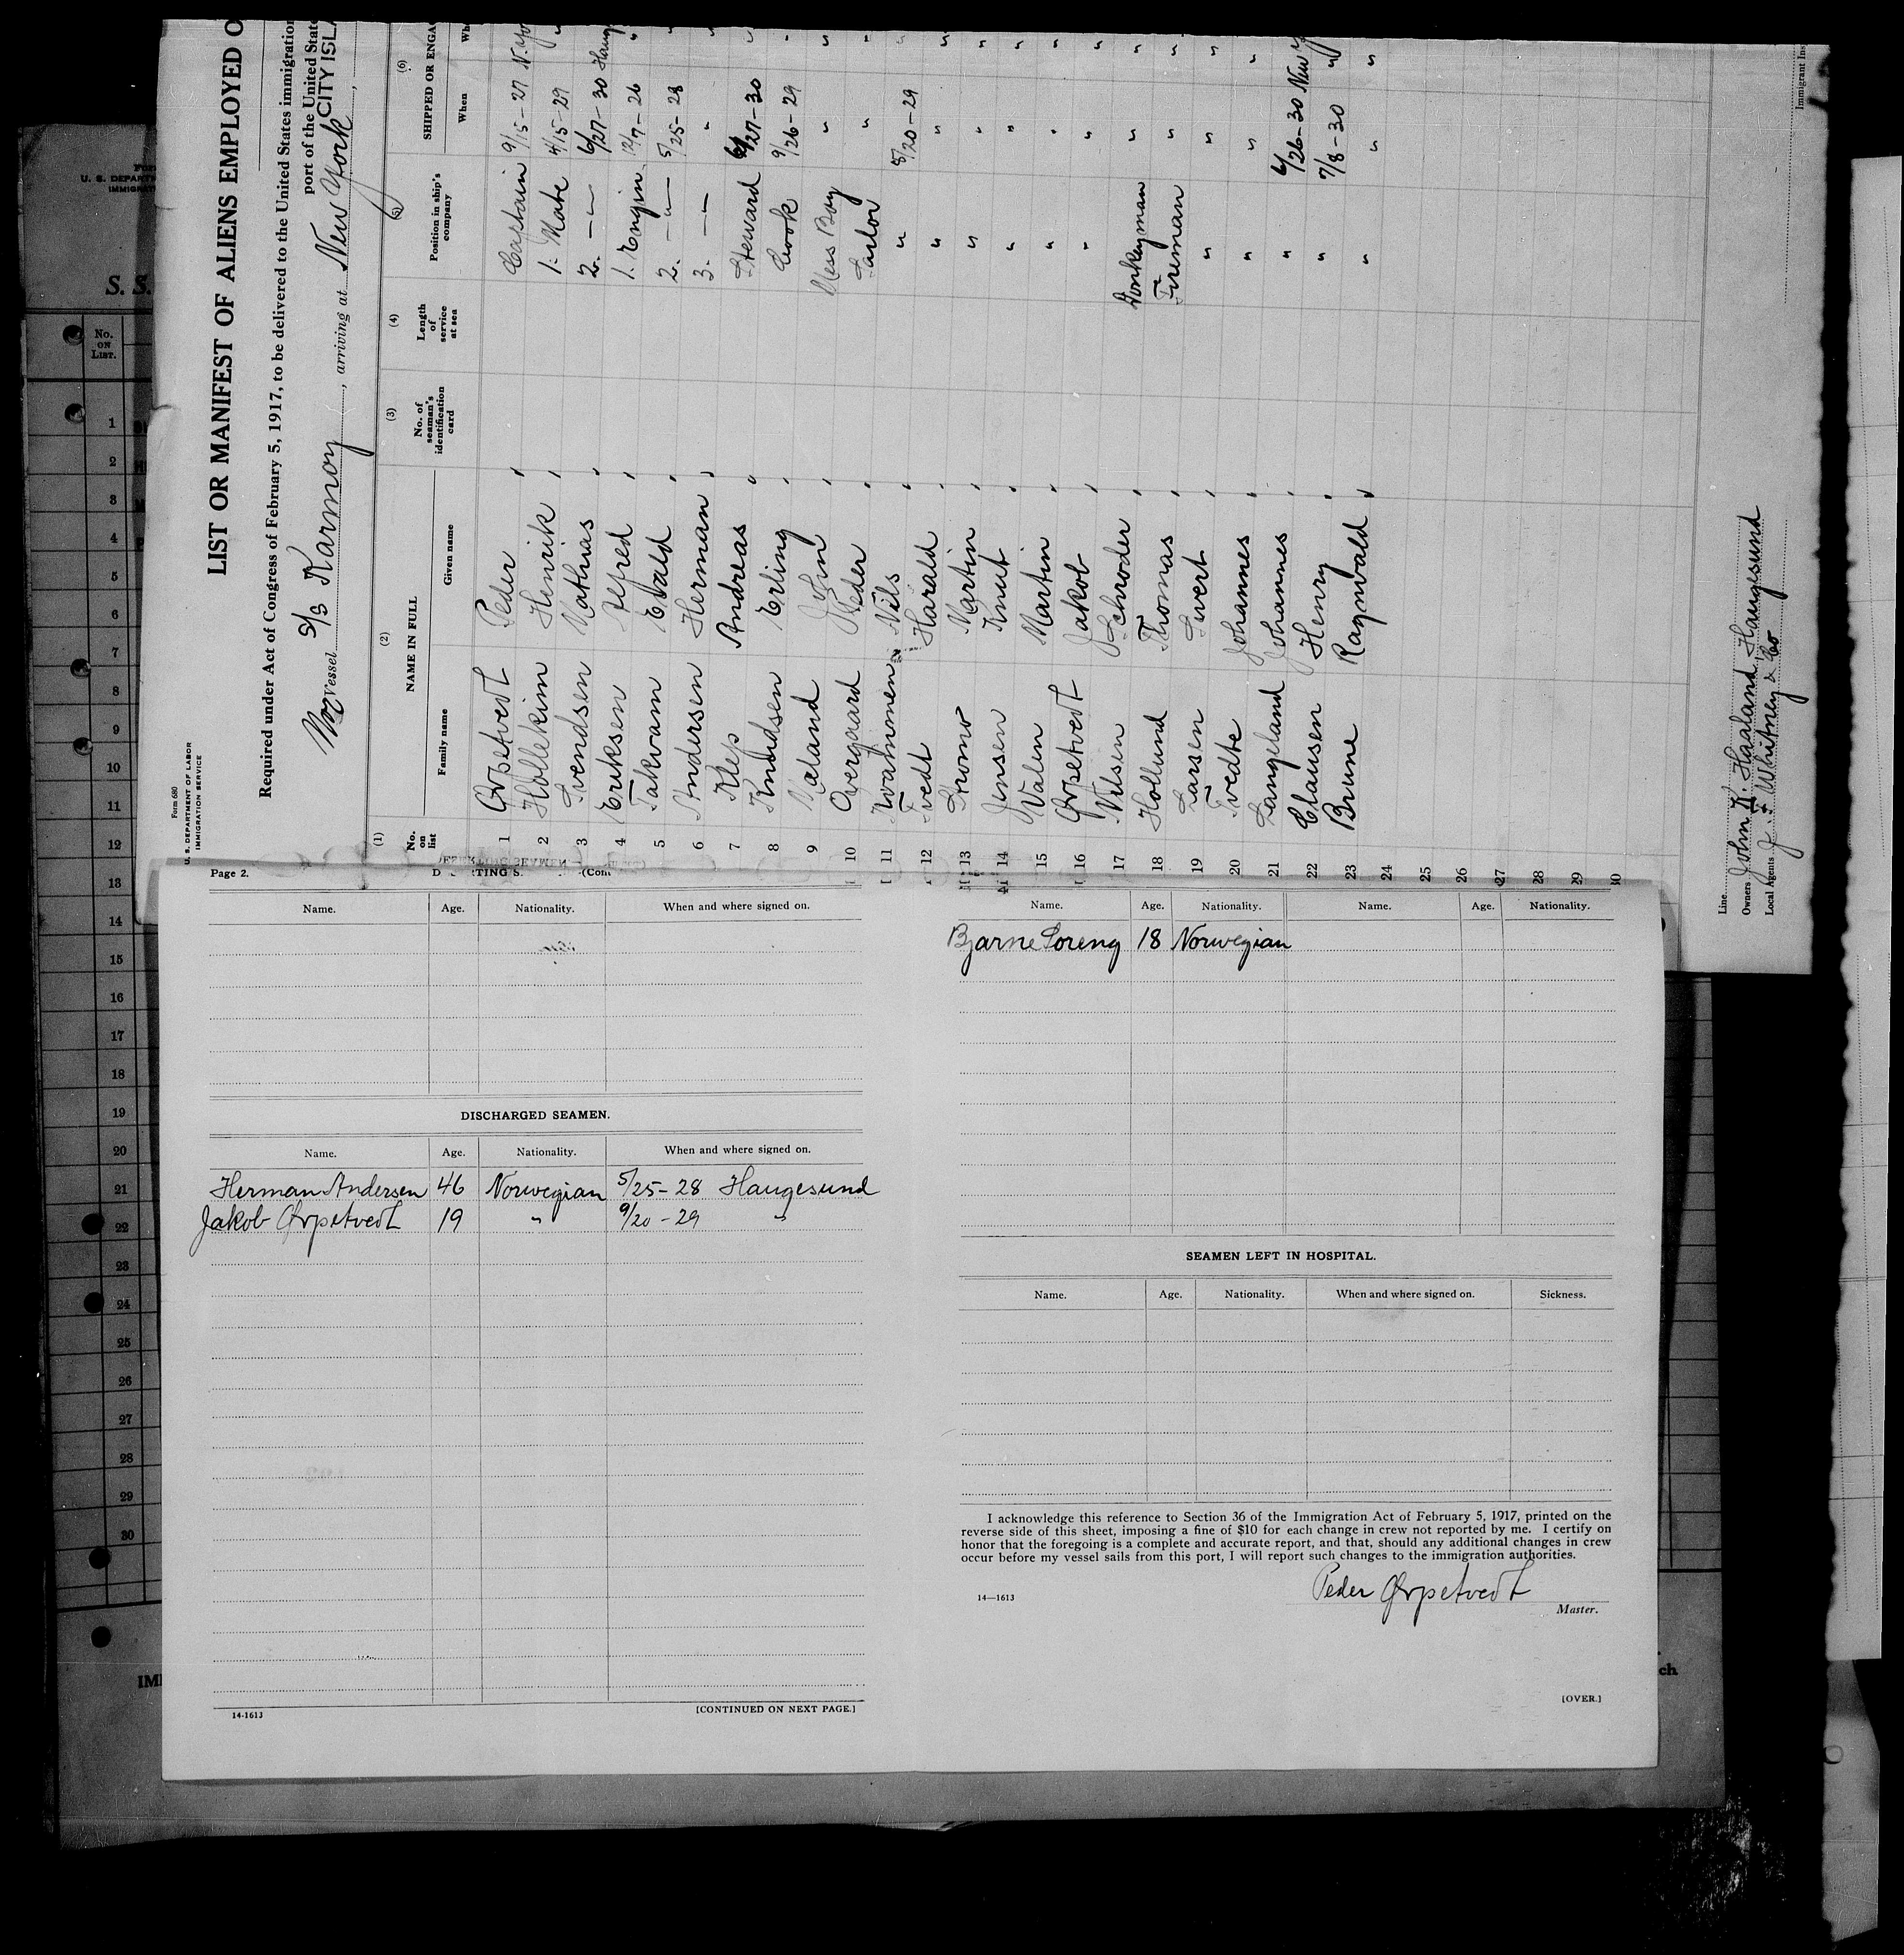 Form 680
U. S. DEPARTMENT OF LABOR
IMMIGRATION SERVICE
LIST OR MANIFEST OF ALIENS EMPLOYED O
Required under Act of Congress of February 5, 1917, to be delivered to the United States immigration
port of the United State
CITY ISL
Vessel S/S Karmoy, arriving at New York,
(1) (2) (3) (4) (5) (6)
No. on list
NAME IN FULL
Family name Given name
No. of seaman's identification card
Length of service at sea
Position in ship's company
SHIPPED OR ENGA
When Wh
1 Orpetvedt Peder Captain 9/15-27 N. Yo
2 Hollekim Henrik 1. Mate 4/15-29 "
3 Svendsen Mathias 2. -"- 6/27-30 Haug
4 Eriksen Alfred 1. Engin. 12/7-26 "
5 Takvam Evald 2. -"- 5/25-28 "
6 Andersen Herman 3. -"- " "
7 Klep Andreas Steward 6/27-30 "
8 Knudsen Erling Cook 9/26-29 "
9 Valand John Mess Boy " "
10 Overgaard Peder Sailor " "
11 Nils " 8/20-29 "
12 Tvedt Harald " " "
13 Martin " " "
14 Jensen Knut " " "
15 Valen Martin " " "
16 Orpetvedt Jakob " " "
17 Nilsen Schroder Donkeyman " "
18 Hollund Thomas Fireman " "
19 Larsen Sivert " " "
20 Tvedte Johannes " " "
21 Langeland Johannes " " "
22 Clausen Henry " 6/26-30 New Y
23 Brune Ragnvald " 7/8-30 "
24
25
26
27
28
29
30
Line
Owners John K. Haaland, Haugesund
Local Agents J. F. Whitney & Co
Immigrant Ins
U. S. DEPART
IMMIGRAT
S. S.
No. ON LIST.
1
2
3
4
5
6
7
8
9
10
11
12
13
14
15
16
17
18
19
20
21
22
23
24
25
26
27
28
29
30
IMI
ch
Page 2.
(Cont
Name. Age. Nationality. When and where signed on.
DISCHARGED SEAMEN.
Name. Age. Nationality. When and where signed on.
Herman Andersen 46 Norwegian 5/25-28 Haugesund
Jakob Orpetvedt 19 " 9/20-29 "
14-1613
[CONTINUED ON NEXT PAGE.]
Name. Age. Nationality. Name. Age. Nationality.
Bjarne Soreng 18 Norwegian
SEAMEN LEFT IN HOSPITAL.
Name. Age. Nationality. When and where signed on. Sickness.
I acknowledge this reference to Section 36 of the Immigration Act of February 5, 1917, printed on the
reverse side of this sheet, imposing a fine of $10 for each change in crew not reported by me. I certify on
honor that the foregoing is a complete and accurate report, and that, should any additional changes in crew
occur before my vessel sails from this port, I will report such changes to the immigration authorities.
Peder Orpetvedt
14—1613
Master.
[OVER.]